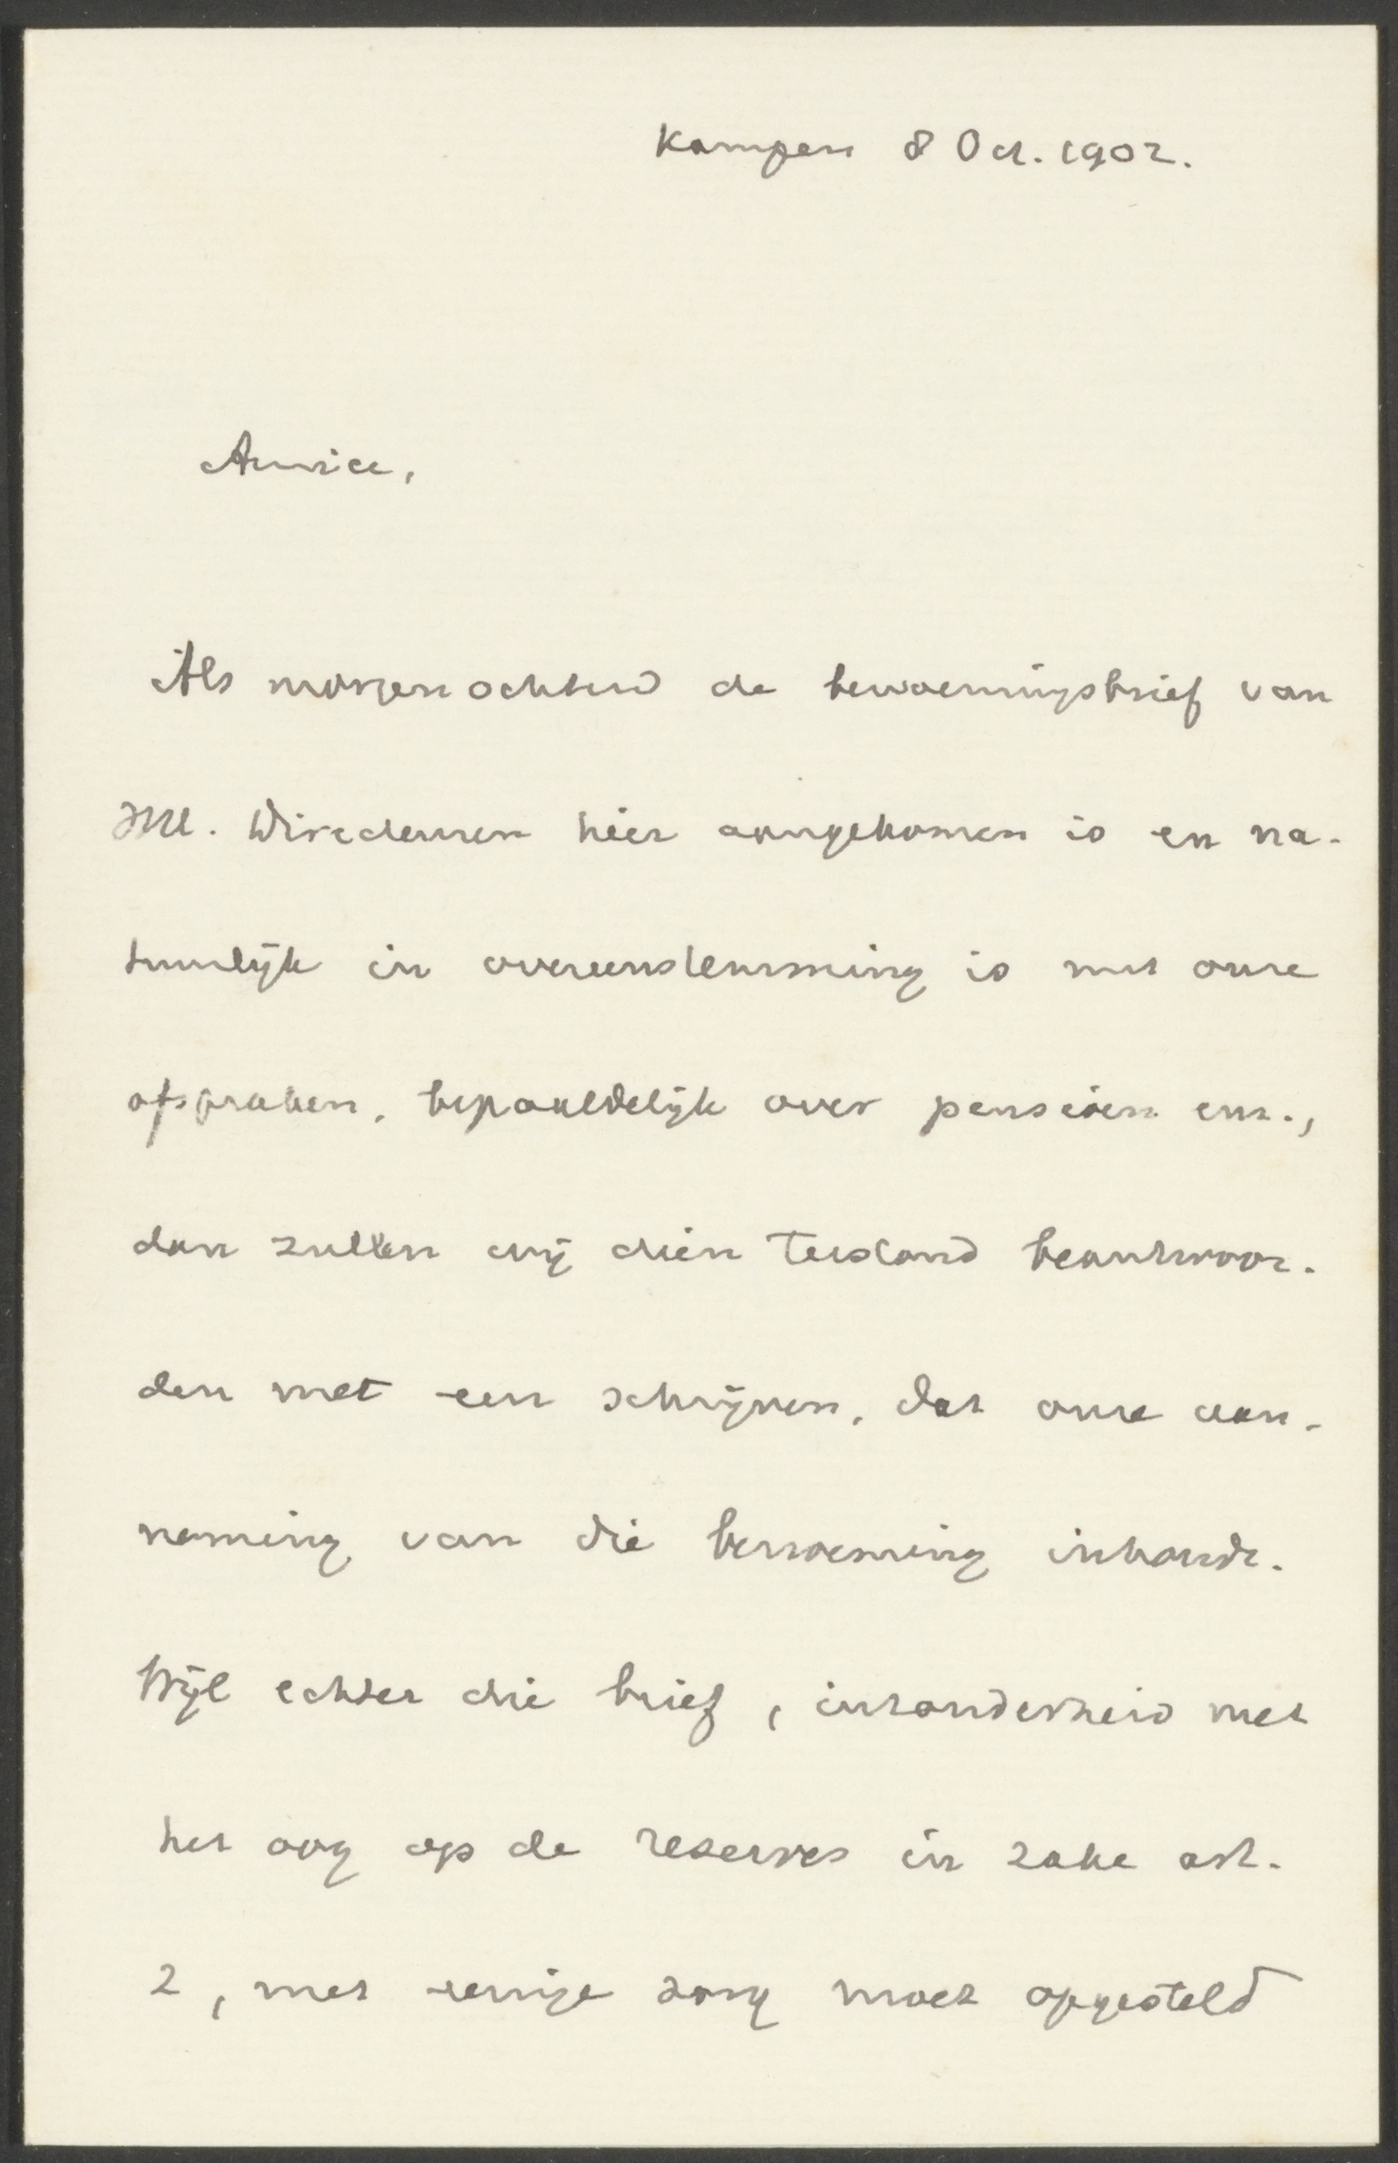 Kampen 8 Oct. 1902.
Amice,
Als morgenochtend de benoemingsbrief van
HH. Directeuren hier aangekomen is en na-
tuurlijk in overeenstemming is met onze
afspraken, bepaaldelijk over pensioen enz.,
dan zullen wij dien terstond beantwoor-
den met een schrijven, dat onze aan-
neming van die benoeming inhoudt.
Wijl echter die brief, inzonderheid met
het oog op de reserves in zake art.
2, met eenige zorg moet opgesteld